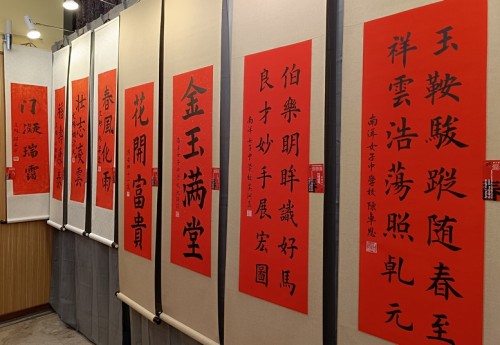 玉鞍駿蹤随春至
祥雲浩荡照乹元
南洋女子中學校
伯樂明眸識好馬
良才妙手展宏圖
南洋女子中學校
金玉满堂
花開富貴
春風化雨
壮志凌雲
门庭瑞霭